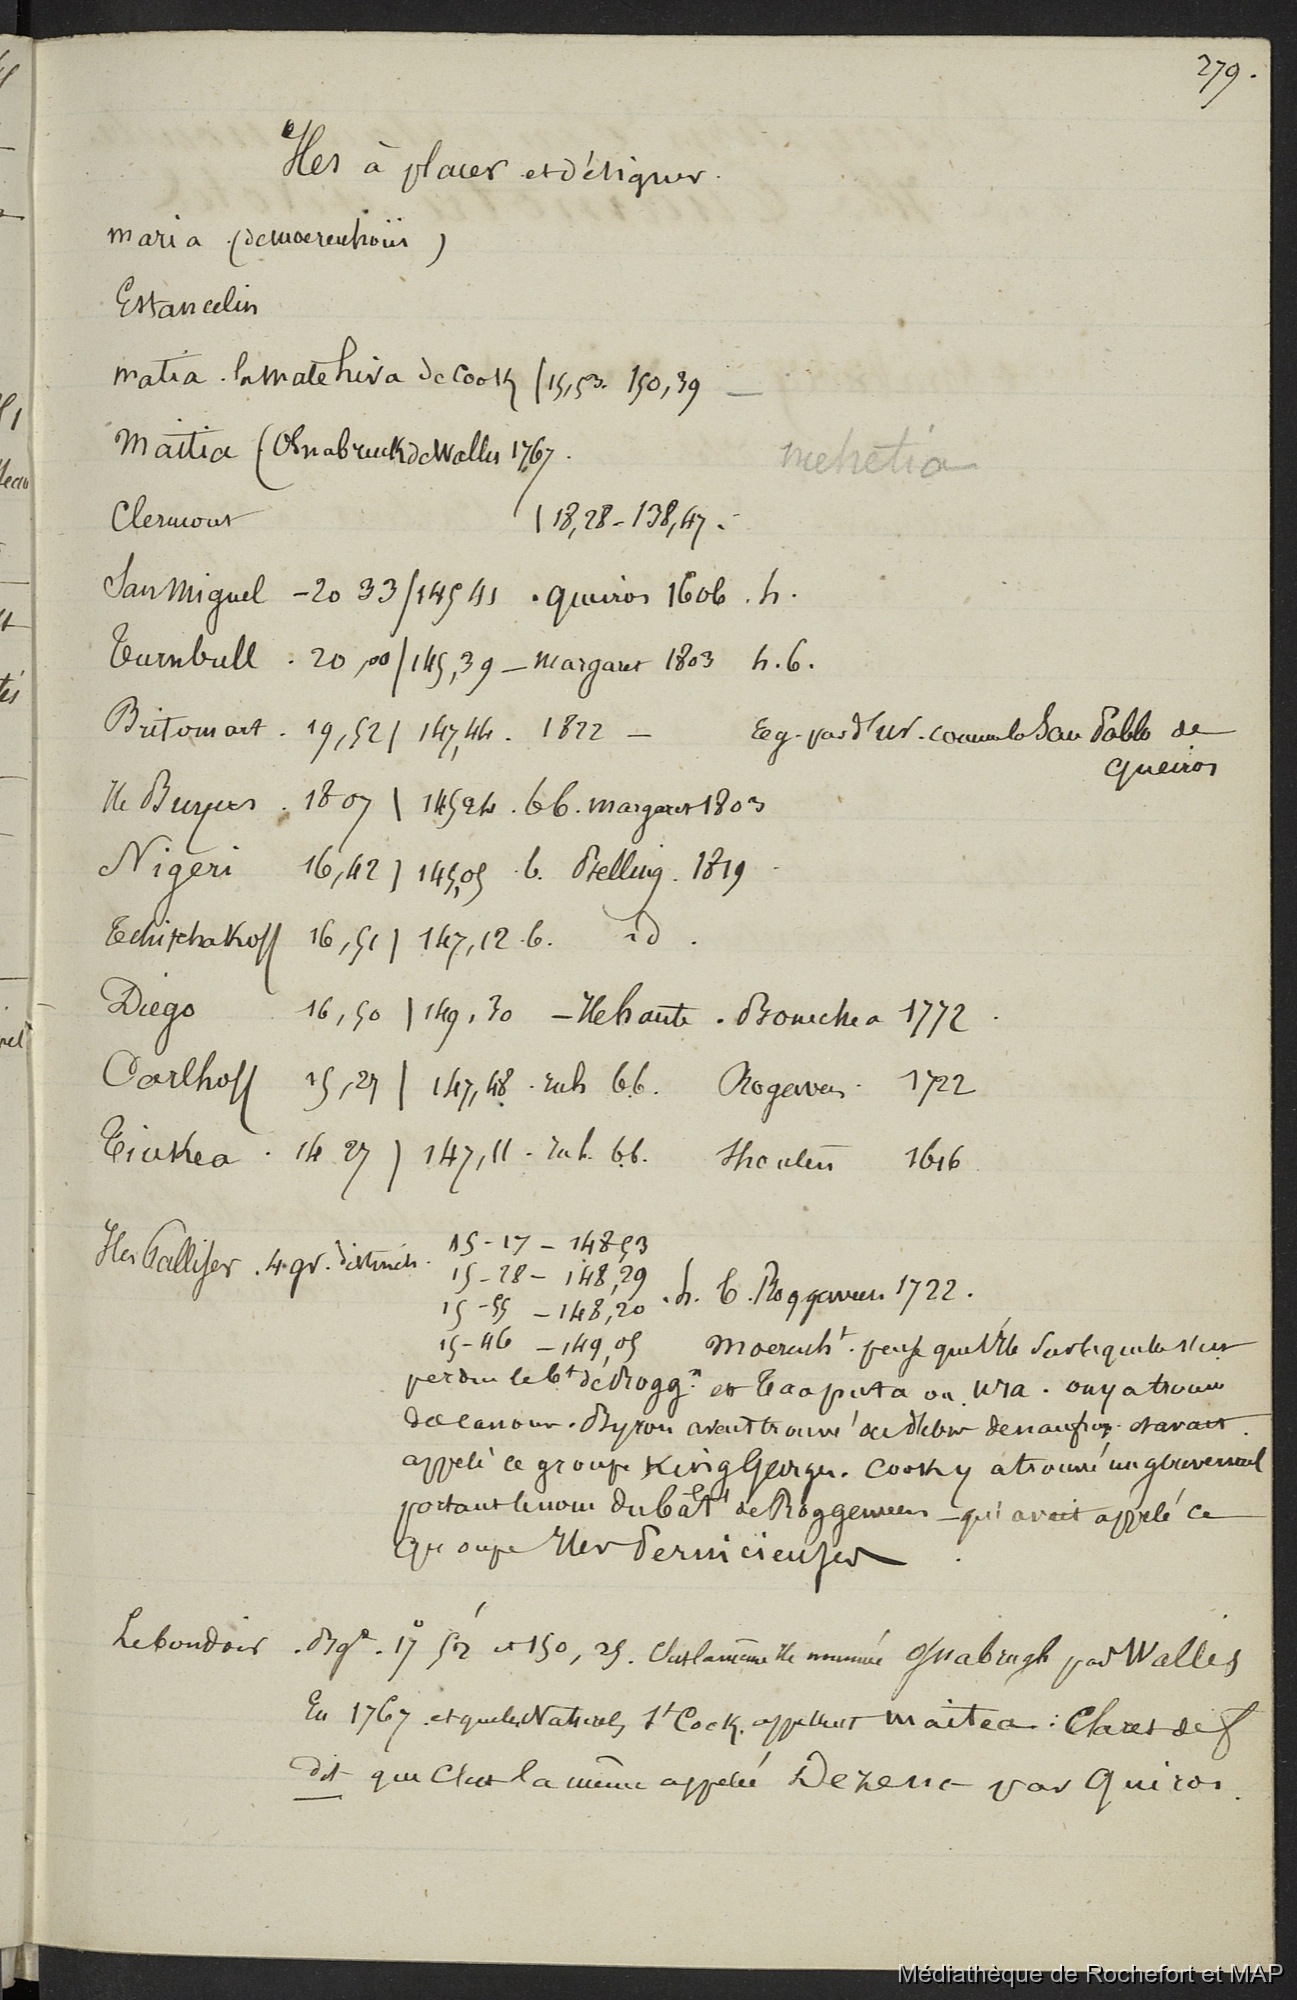 279.
Iles à placer et désigner.
maria (de Moerenhoüs)
Estancelin
matia. la matehiva de Cook / 15,53. 150,39 —
Maitia (Osnabruck de Wallis 1767.
mehetia
Clermont / 18,28 - 138,47.
San Miguel - 20 33 / 145 41 . Queiros 1606 . h.
Turnbull . 20,00 / 145,39 — Margaret 1803 h. b.
Britomart . 19,52 / 147,44 . 1822 — San Pablo de
Queiros
Ile Buyers . 18 07 / 145 24 . bb. Margaret 1803
Nigeri 16,42 / 145,05 . b. Belling. 1819
Tchitchakoff 16,51 / 147,12 . b. id .
Diego 16,50 / 149,30 — Ile haute . Bonechea 1772 .
Carlhoff 15,27 / 147,48 . inh bb. Rogeven . 1722
Tiokea . 14 27 / 147,11 . inh. bb. Shouten 1616
Iles Palliser . 4 gr. distincts . 15 - 17 - 148,53
15 - 28 - 148,29
15 - 55 - 148,20 . h. b. Roggeveen 1722 .
15 - 46 - 149,05 Moerenht . pense que l'île sur laquelle s'est
perdu le bt de Rogg.n est Taaputa ou Ura . on y a trouvé
des canons . Byron avait trouvé des débris de naufrage et avait
appelé ce groupe King George . Cook y a trouvé un gouvernail
portant le nom du bât.t de Roggeween — qui avait appelé ce
groupe Iles Pernicieuses .
Le boudoir . Bge . 17° 52' et 150,25 . C'est la même île nommée Osnabrugh par Wallis
En 1767 . et que les Naturels, st Cook . appellent maitea : Claret de f
dit que C'est la même appelée Dezena par Quiros .